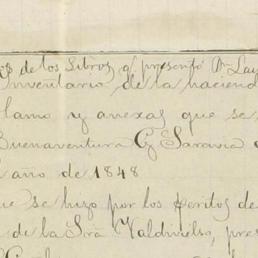 de los Libros q. presentó Dn. Lau
Inventario de la haciend
lamo y anexas que se
Buenaventura G. Saravia
ano de 1848
ue se hizo por los peritos de
de la Sra. Valdivielso, pres